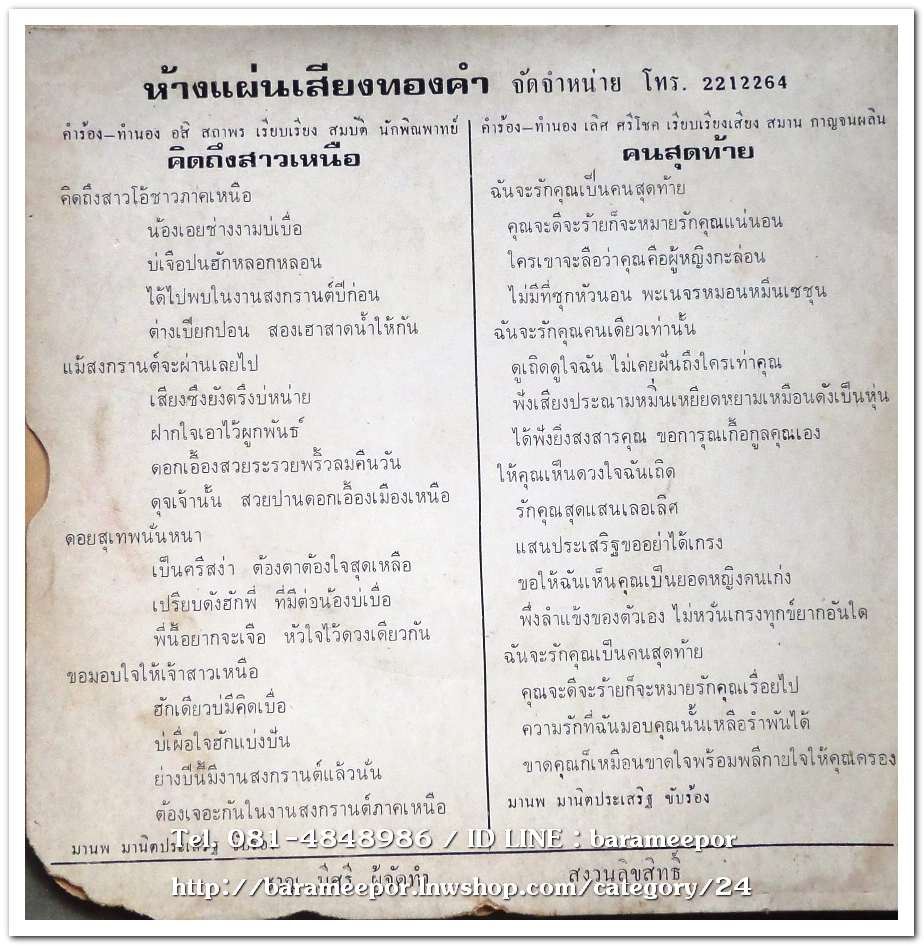 ห้างแผ่นเสียงทองคำ จัดจำหน่าย โทร. 2212264
คำร้อง–ทำนอง อสิ สถาพร เรียบเรียง สมบัติ นักพิณพาทย์
คิดถึงสาวเหนือ
คิดถึงสาวโอ้ชาวภาคเหนือ
น้องเอยช่างงามบ่เบื่อ
บ่เจือปนฮักหลอกหลอน
ได้ไปพบในงานสงกรานต์ปีก่อน
ต่างเปียกปอน สองเฮาสาดน้ำให้กัน
แม้สงกรานต์จะผ่านเลยไป
เสียงซึงยังตรึงบ่หน่าย
ฝากใจเอาไว้ผูกพันธ์
ดอกเอื้องสวยระรวยพริ้วลมคืนวัน
ดุจเจ้านั้น สวยปานดอกเอื้องเมืองเหนือ
ดอยสุเทพนั่นหนา
เป็นศรีสง่า ต้องตาต้องใจสุดเหลือ
เปรียบดังฮักพี่ ที่มีต่อน้องบ่เบื่อ
พี่นี้อยากจะเจือ หัวใจไว้ดวงเดียวกัน
ขอมอบใจให้เจ้าสาวเหนือ
ฮักเดียวบ่มีคิดเบื่อ
บ่เผื่อใจฮักแบ่งปัน
ย่างปีนี้มีงานสงกรานต์แล้วนั่น
ต้องเจอะกันในงานสงกรานต์ภาคเหนือ
มานพ มานิตประเสริฐ
คำร้อง–ทำนอง เลิศ ศรีโชค เรียบเรียงเสียง สมาน กาญจนผลิน
คนสุดท้าย
ฉันจะรักคุณเป็นคนสุดท้าย
คุณจะดีจะร้ายก็จะหมายรักคุณแน่นอน
ใครเขาจะลือว่าคุณคือผู้หญิงกะล่อน
ไม่มีที่ซุกหัวนอน พะเนจรหมอนหมิ่นเซซุน
ฉันจะรักคุณคนเดียวเท่านั้น
ดูเถิดดูใจฉัน ไม่เคยฝันถึงใครเท่าคุณ
ฟังเสียงประณามหมิ่นเหยียดหยามเหมือนดังเป็นหุ่น
ได้ฟังยิ่งสงสารคุณ ขอการุณเกื้อกูลคุณเอง
ให้คุณเห็นดวงใจฉันเถิด
รักคุณสุดแสนเลอเลิศ
แสนประเสริฐขออย่าได้เกรง
ขอให้ฉันเห็นคุณเป็นยอดหญิงคนเก่ง
พึ่งลำแข้งของตัวเอง ไม่หวั่นเกรงทุกข์ยากอันใด
ฉันจะรักคุณเป็นคนสุดท้าย
คุณจะดีจะร้ายก็จะหมายรักคุณเรื่อยไป
ความรักที่ฉันมอบคุณนั้นเหลือรำพันได้
ขาดคุณก็เหมือนขาดใจพร้อมพลีกายใจให้คุณครอง
มานพ มานิตประเสริฐ ขับร้อง
Tel. 081-4848986 / ID LINE : barameepor
ผู้จัดทำ สงวนลิขสิทธิ์
http://barameepor.lnwshop.com/category/24